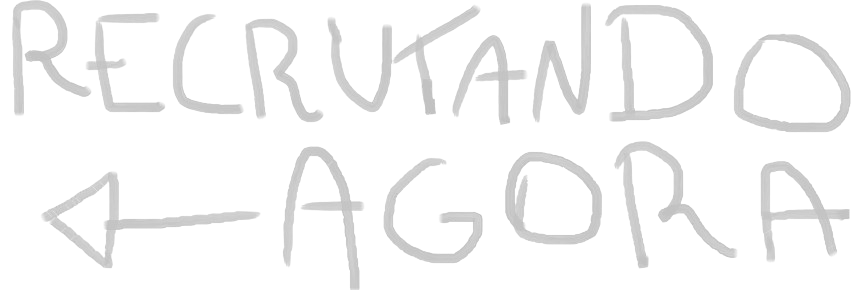 RECRUTANDO
AGORA